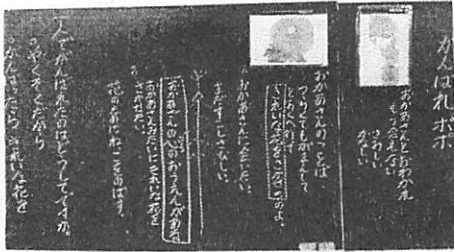 がんばれ ポポ
おかあさんとおわかれ
もう会えない
さわしい
かなしい
おかあさんのことば
つらくてもがまんして
とおくへ行け
きれいな花を、さかせるのよ。
おかあさんに会いたい。
まだすこしさむい。
おかあさんの心のおうえんがある
おかあさんみたいにきれいな花を
さかせたい。
花のためにねっこをのばす。
一人でがんばれたのはどうしてですか。
やくそくだから
がんばったらきれいな花を